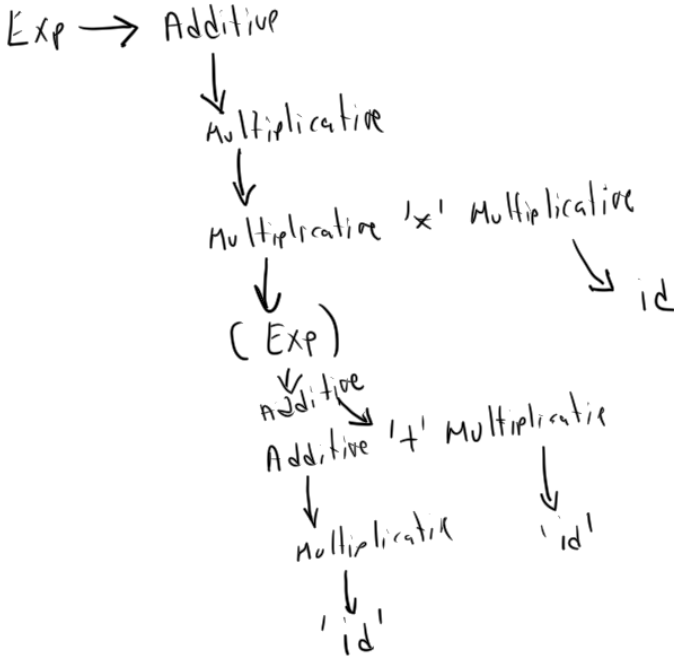 Exp → Additive
Multiplicative
Multiplicative 'x' Multiplicative
id
( Exp )
Additive
Additive '+' Multiplicatie
Multiplicatie
'id'
'id'